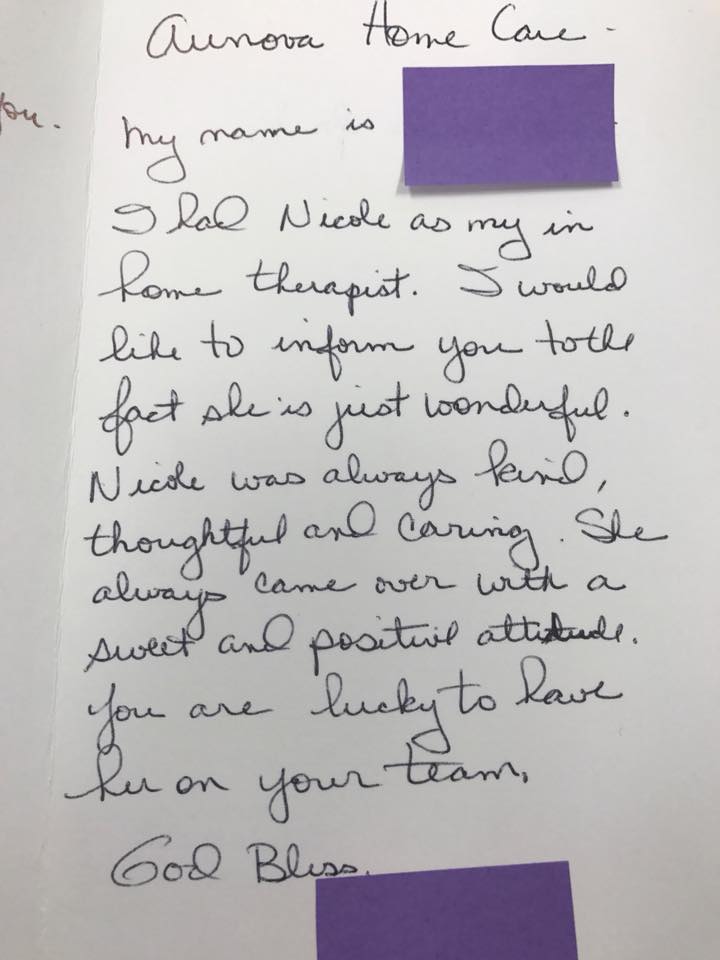 Aunova Home Care -
My name is
I had Nicole as my in
home therapist. I would
like to inform you tothe
fact she is just wonderful.
Nicole was always kind,
thoughtful and caring. She
always came over with a
sweet and positive attitude.
You are lucky to have
her on your team,
God Bless.
you.